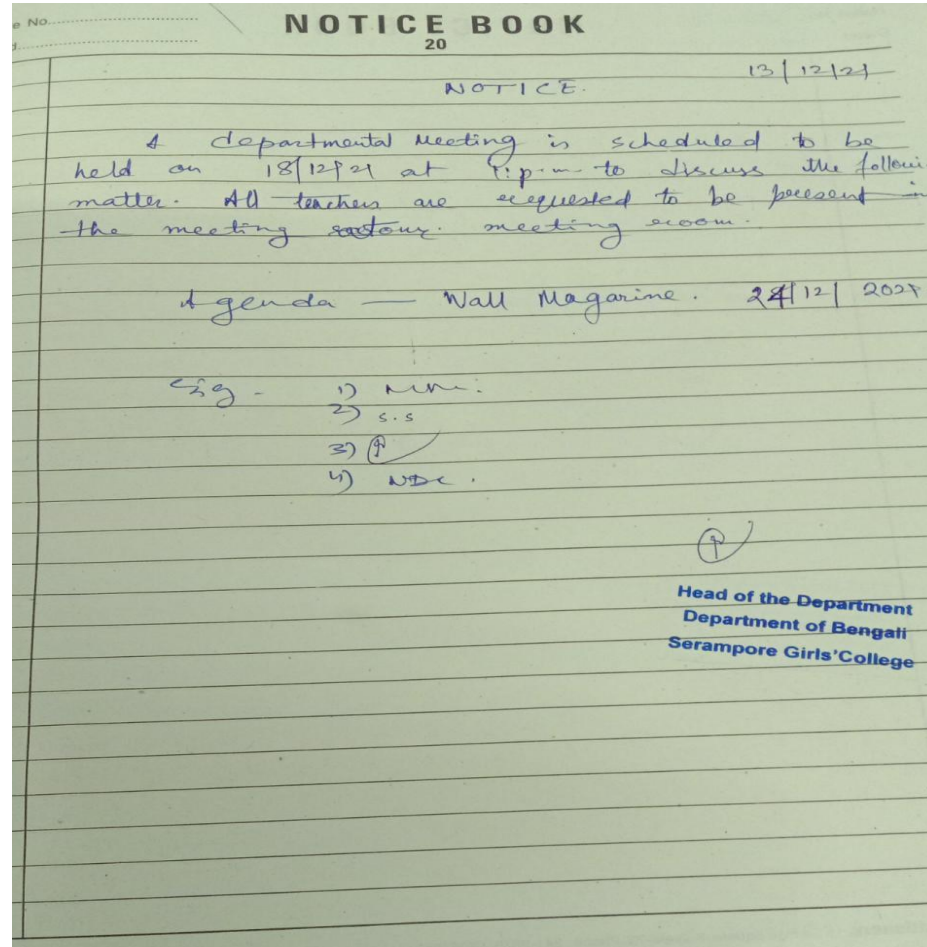 e No.
NOTICE BOOK
20
13/12/21
NOTICE.
A departmental meeting is scheduled to be
held on 18/12/21 at 1 p.m to discuss the followi
matter. All teachers are requested to be present in
the meeting meeting room.
Agenda — Wall Magazine. 24/12/2021
Sig -
1)
2) S.S
3)
4) NDC.
Head of the Department
Department of Bengali
Serampore Girls'College